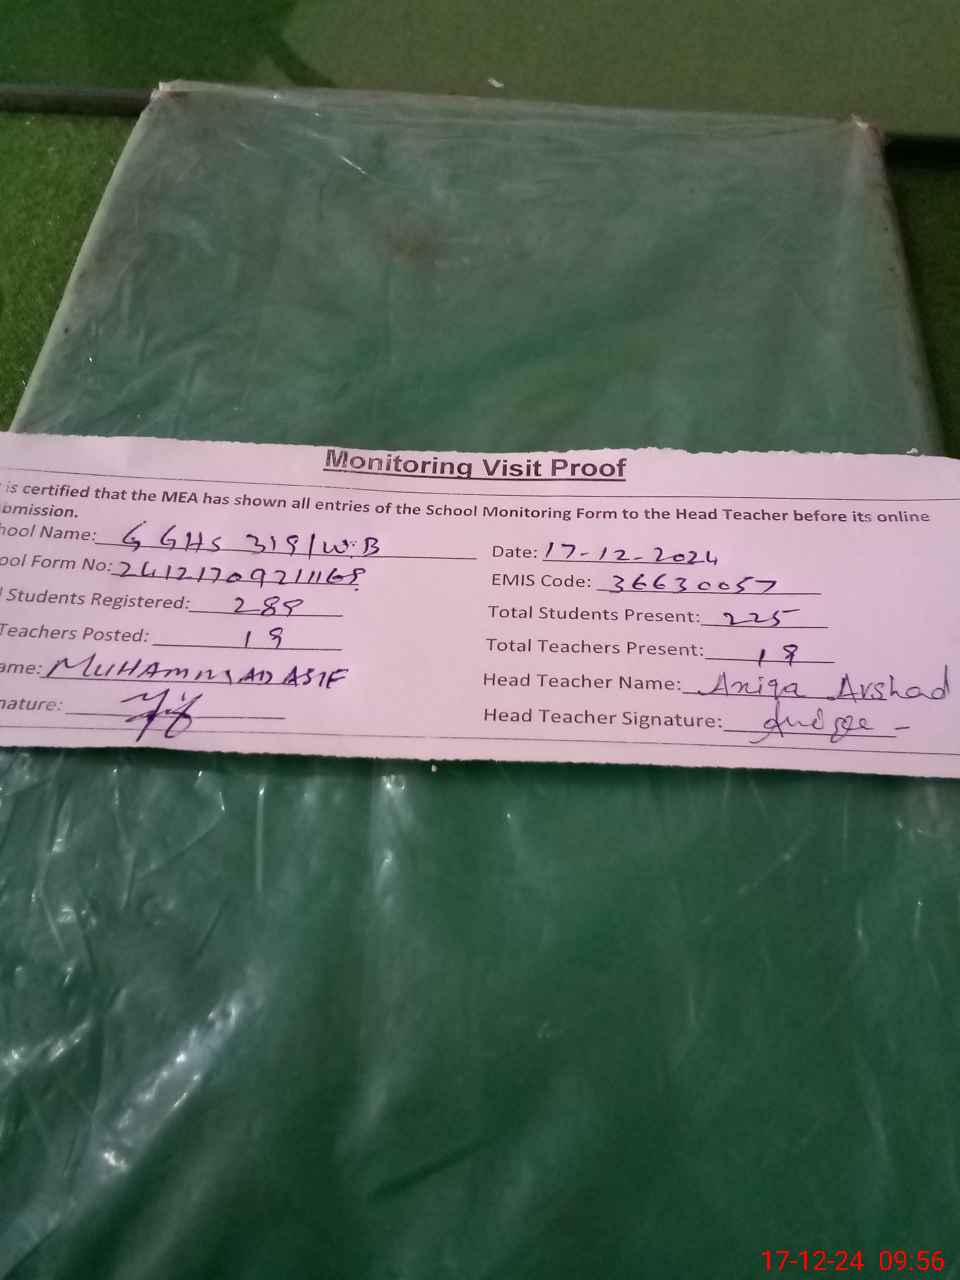 Monitoring Visit Proof
is certified that the MEA has shown all entries of the School Monitoring Form to the Head Teacher before its online
bmission.
hool Name: GGHS 319/W.B Date: 17-12-2024
ool Form No: EMIS Code: 36630057
l Students Registered: Total Students Present: 225
Teachers Posted: 19 Total Teachers Present: 18
ame: MUHAMMAD ASIF Head Teacher Name: Aniqa Arshad
nature: Head Teacher Signature:
17-12-24 09:56